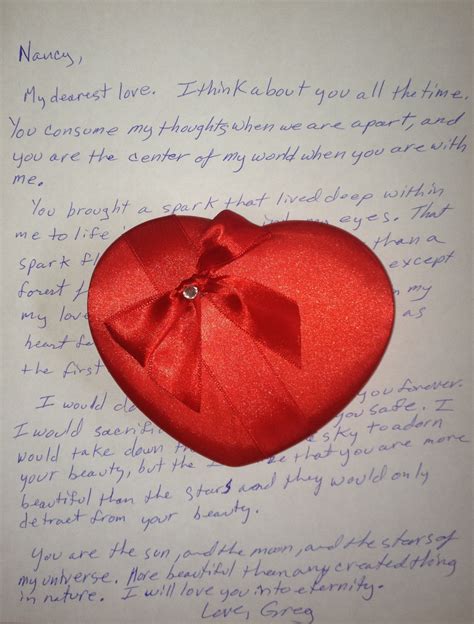 Nancy,
My dearest love. I think about you all the time.
You consume my thoughts when we are apart, and
you are the center of my world when you are with
me.
You brought a spark that lived deep within
me to life eyes. That
spark than a
forest except
my love my
heart as
the first
I would you forever.
I would you safe. I
would take down sky to adorn
your beauty, but the that you are more
beautiful than the stars and they would only
detract from your beauty.
You are the sun, and the moon, and the stars of
my universe. More beautiful than any created thing
in nature. I will love you into eternity.
Love, Greg